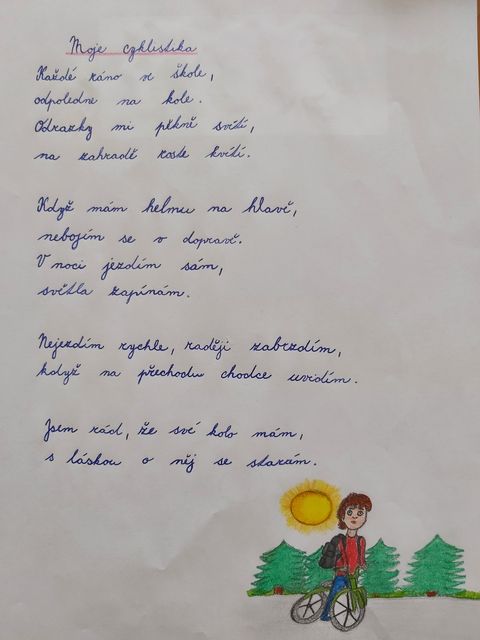 Moje cyklistika
Každé ráno ve škole,
odpoledne na kole.
Odrazky mi pěkně svítí,
na zahradě roste kvítí.
Když mám helmu na hlavě,
nebojím se v dopravě.
V noci jezdím sám,
světla zapínám.
Nejezdím rychle, raději zabrzdím,
když na přechodu chodce uvidím.
Jsem rád, že své kolo mám,
s láskou o něj se starám.